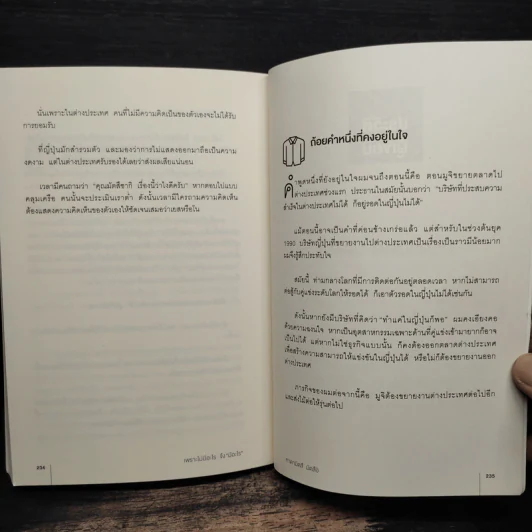 นั่นเพราะในต่างประเทศ คนที่ไม่มีความคิดเป็นของตัวเองจะไม่ได้รับ
การยอมรับ
ที่ญี่ปุ่นมักสำรวมตัว และมองว่าการไม่แสดงออกมาถือเป็นความ
งดงาม แต่ในต่างประเทศรับรองได้เลยว่าส่งผลเสียแน่นอน
เวลามีคนถามว่า “คุณมัตสึซากิ เรื่องนี้ว่าไงดีครับ” หากตอบไปแบบ
คลุมเครือ คนนั้นจะประเมินเราต่ำ ดังนั้นเวลามีใครถามความคิดเห็น
ต้องแสดงความคิดเห็นของตัวเองให้ชัดเจนเสมอว่าเยสหรือโน
234
เพราะไม่มีอะไร จึง“มีอะไร”
ถ้อยคำหนึ่งที่คงอยู่ในใจ
คำพูดหนึ่งที่ยังอยู่ในใจผมจนถึงตอนนี้คือ ตอนมูจิขยายตลาดไป
ต่างประเทศช่วงแรก ประธานในสมัยนั้นบอกว่า “บริษัทที่ประสบความ
สำเร็จในต่างประเทศไม่ได้ ก็อยู่รอดในญี่ปุ่นไม่ได้”
แม้ตอนนี้อาจเป็นคำที่ค่อนข้างเกร่อแล้ว แต่สำหรับในช่วงต้นยุค
1990 บริษัทญี่ปุ่นที่ขยายงานไปต่างประเทศเป็นเรื่องเป็นราวมีน้อยมาก
ผมจึงรู้สึกประทับใจ
สมัยนี้ ท่ามกลางโลกที่มีการติดต่อกันอยู่ตลอดเวลา หากไม่สามารถ
ต่อสู้กับคู่แข่งระดับโลกให้รอดได้ ก็เอาตัวรอดในญี่ปุ่นไม่ได้เช่นกัน
ดังนั้นหากยังมีบริษัทที่คิดว่า “ทำแค่ในญี่ปุ่นก็พอ” ผมคงเอียงคอ
ด้วยความฉงนใจ หากเป็นอุตสาหกรรมเฉพาะด้านที่คู่แข่งเข้ามายากก็อาจ
เป็นไปได้ แต่หากไม่ใช่ธุรกิจแบบนั้น ก็คงต้องออกตลาดต่างประเทศ
เพื่อสร้างความสามารถให้แข่งขันในญี่ปุ่นได้ หรือไม่ก็ต้องขยายงานออก
ต่างประเทศ
ภารกิจของผมต่อจากนี้คือ มูจิต้องขยายงานต่างประเทศต่อไปอีก
และส่งไม้ต่อให้รุ่นต่อไป
235